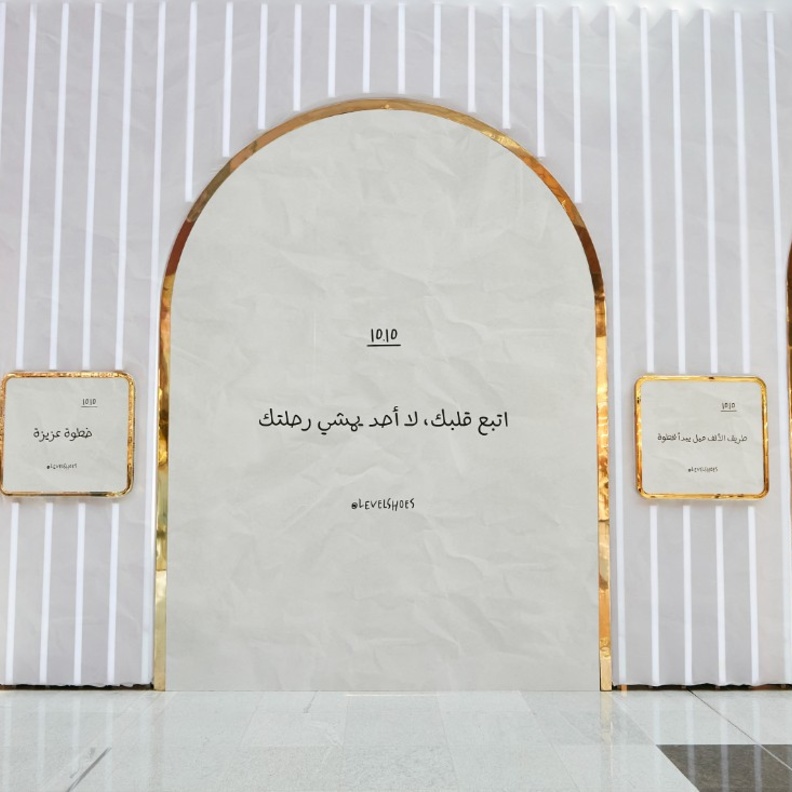 10.10
اتبع قلبك، لا أحد يمشي رحلتك
@LEVELSHOES
10.10
خطوة عزيزة
@LEVELSHOES
10.10
طريق الألف ميل يبدأ بخطوة
@LEVELSHOES